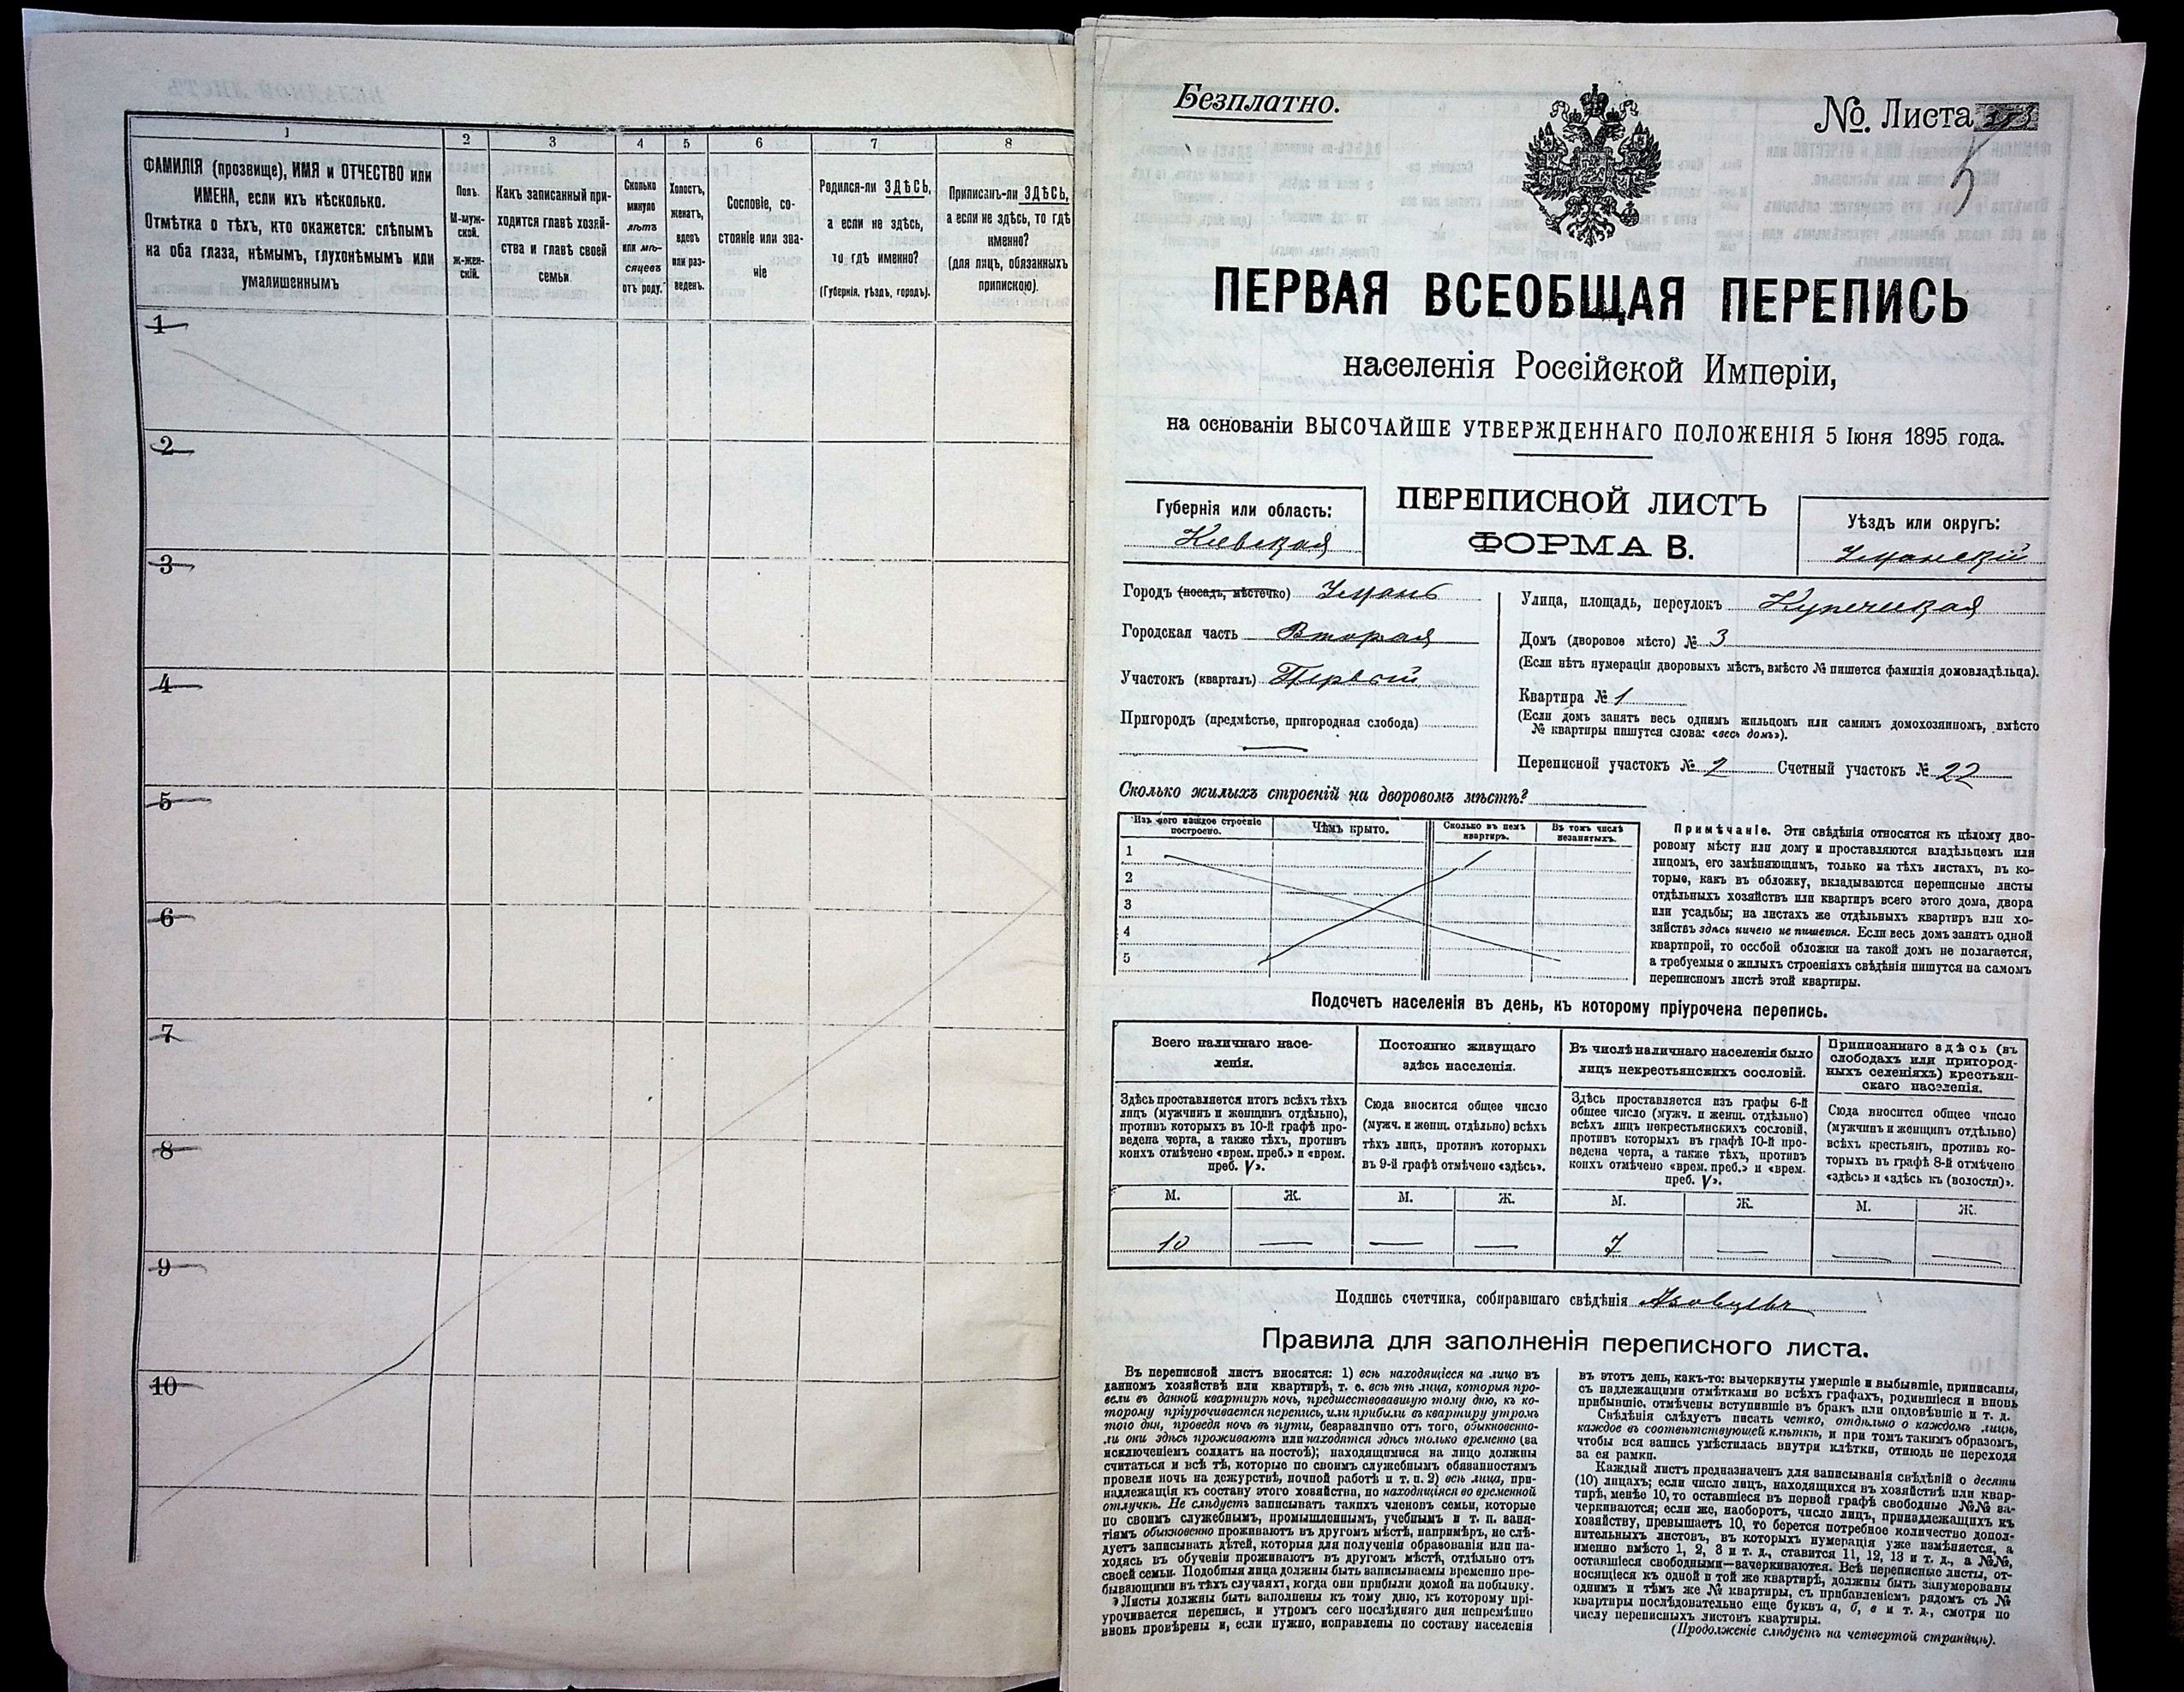 1 2 3 4 5 6 7 8
ФАМИЛІЯ (прозвище), ИМЯ и ОТЧЕСТВО или
ИМЕНА, если ихъ нѣсколько.
Отмѣтка о тѣхъ, кто окажется: слѣпымъ
на оба глаза, нѣмымъ, глухонѣмымъ или
умалишеннымъ
Полъ.
М-муж-
ской.
Ж-жен-
скій.
Какъ записанный при-
ходится главѣ хозяй-
ства и главѣ своей
семьи
Сколько
минуло
лѣтъ
или мѣ-
сяцевъ
отъ роду.
Холостъ,
женатъ,
вдовъ
или раз-
веденъ.
Сословіе, со-
стояніе или зва-
ніе
Родился-ли ЗДѢСЬ,
а если не здѣсь,
то гдѣ именно?
(Губернія, уѣздъ, городъ).
Приписанъ-ли ЗДѢСЬ,
а если не здѣсь, то гдѣ
именно?
(для лицъ, обязанныхъ
припискою).
1
2
3
4
5
6
7
8
9
10
Безплатно.
№. Листа
5
ПЕРВАЯ ВСЕОБЩАЯ ПЕРЕПИСЬ
населенія Россійской Имперіи,
на основаніи ВЫСОЧАЙШЕ УТВЕРЖДЕННАГО ПОЛОЖЕНІЯ 5 Іюня 1895 года.
Губернія или область:
Кіевская
ПЕРЕПИСНОЙ ЛИСТЪ
ФОРМА В.
Уѣздъ или округъ:
Уманскій
Городъ (посадъ, мѣстечко) Умань
Городская часть Вторая
Участокъ (кварталъ) Первый
Пригородъ (предмѣстье, пригородная слобода)
Улица, площадь, переулокъ Купеческая
Домъ (дворовое мѣсто) № 3
(Если нѣтъ нумераціи дворовыхъ мѣстъ, вмѣсто № пишется фамилія домовладѣльца).
Квартира № 1
(Если домъ занятъ весь однимъ жильцомъ или самимъ домохозяиномъ, вмѣсто
№ квартиры пишутся слова: «весь домъ»).
Переписной участокъ № 2 Счетный участокъ № 22
Сколько жилыхъ строеній на дворовомъ мѣстѣ?
Изъ чего каждое строеніе
построено.
Чѣмъ крыто.
Сколько въ немъ
квартиръ.
Въ томъ числѣ
незанятыхъ.
1
2
3
4
5
Примѣчаніе. Эти свѣдѣнія относятся къ цѣлому дво-
ровому мѣсту или дому и проставляются владѣльцемъ или
лицомъ, его замѣняющимъ, только на тѣхъ листахъ, въ ко-
торые, какъ въ обложку, вкладываются переписные листы
отдѣльныхъ хозяйствъ или квартиръ всего этого дома, двора
или усадьбы; на листахъ же отдѣльныхъ квартиръ или хо-
зяйствъ здѣсь ничего не пишется. Если весь домъ занятъ одной
квартирой, то особой обложки на такой домъ не полагается,
а требуемыя о жилыхъ строеніяхъ свѣдѣнія пишутся на самомъ
переписномъ листѣ этой квартиры.
Подсчетъ населенія въ день, къ которому пріурочена перепись.
Всего наличнаго насе-
ленія.
Здѣсь проставляется итогъ всѣхъ тѣхъ
лицъ (мужчинъ и женщинъ отдѣльно),
противъ которыхъ въ 10-й графѣ про-
ведена черта, а также тѣхъ, противъ
коихъ отмѣчено «врем. преб.» и «врем.
преб. V».
Постоянно живущаго
здѣсь населенія.
Сюда вносится общее число
(мужч. и женщ. отдѣльно) всѣхъ
тѣхъ лицъ, противъ которыхъ
въ 9-й графѣ отмѣчено «здѣсь».
Въ числѣ наличнаго населенія было
лицъ некрестьянскихъ сословій.
Здѣсь проставляется изъ графы 6-й
общее число (мужч. и женщ. отдѣльно)
всѣхъ лицъ некрестьянскихъ сословій,
противъ которыхъ въ графѣ 10-й про-
ведена черта, а также тѣхъ, противъ
коихъ отмѣчено «врем. преб.» и «врем.
преб. V».
Приписаннаго здѣсь (въ
слободахъ или пригород-
ныхъ селеніяхъ) крестьян-
скаго населенія.
Сюда вносится общее число
(мужчинъ и женщинъ отдѣльно)
всѣхъ крестьянъ, противъ ко-
торыхъ въ графѣ 8-й отмѣчено
«здѣсь» и «здѣсь къ (волости)».
М. Ж. М. Ж. М. Ж. М. Ж.
10 — — — 7 — — —
Подпись счетчика, собиравшаго свѣдѣнія
Правила для заполненія переписного листа.
Въ переписной листъ вносятся: 1) всѣ находящіеся на лицо въ
данномъ хозяйствѣ или квартирѣ, т. е. всѣ тѣ лица, которыя про-
вели въ данной квартирѣ ночь, предшествовавшую тому дню, къ ко-
торому пріурочивается перепись, или прибыли въ квартиру утромъ
того дня, проведя ночь въ пути, безразлично отъ того, обыкновенно-
ли они здѣсь проживаютъ или находятся здѣсь только временно (за
исключеніемъ солдатъ на постоѣ); находящимися на лицо должны
считаться и всѣ тѣ, которые по своимъ служебнымъ обязанностямъ
провели ночь на дежурствѣ, ночной работѣ и т. п. 2) всѣ лица, при-
надлежащія къ составу этого хозяйства, но находящіяся во временной
отлучкѣ. Не слѣдуетъ записывать такихъ членовъ семьи, которые
по своимъ служебнымъ, промышленнымъ, учебнымъ и т. п. заня-
тіямъ обыкновенно проживаютъ въ другомъ мѣстѣ, напримѣръ, не слѣ-
дуетъ записывать дѣтей, которыя для полученія образованія или на-
ходясь въ обученіи проживаютъ въ другомъ мѣстѣ, отдѣльно отъ
своей семьи. Подобныя лица должны быть записываемы временно пре-
бывающими въ тѣхъ случаяхъ, когда они прибыли домой на побывку.
Листы должны быть заполнены къ тому дню, къ которому прі-
урочивается перепись, и утромъ сего послѣдняго дня непремѣнно
вновь провѣрены и, если нужно, исправлены по составу населенія
въ этотъ день, какъ-то: вычеркнуты умершіе и выбывшіе, приписаны,
съ надлежащими отмѣтками во всѣхъ графахъ, родившіеся и вновь
прибывшіе, отмѣчены вступившіе въ бракъ или овдовѣвшіе и т. д.
Свѣдѣнія слѣдуетъ писать четко, отдѣльно о каждомъ лицѣ,
каждое въ соотвѣтствующей клѣткѣ, и при томъ такимъ образомъ,
чтобы вся запись умѣстилась внутри клѣтки, отнюдь не переходя
за ея рамки.
Каждый листъ предназначенъ для записыванія свѣдѣній о десяти
(10) лицахъ; если число лицъ, находящихся въ хозяйствѣ или квар-
тирѣ, менѣе 10, то оставшіеся въ первой графѣ свободные №№ за-
черкиваются; если же, наоборотъ, число лицъ, принадлежащихъ къ
хозяйству, превышаетъ 10, то берется потребное количество допол-
нительныхъ листовъ, въ которыхъ нумерація уже измѣняется, а
именно вмѣсто 1, 2, 3 и т. д., ставится 11, 12, 13 и т. д., а №№,
оставшіеся свободными—зачеркиваются. Всѣ переписные листы, от-
носящіеся къ одной и той же квартирѣ, должны быть занумерованы
однимъ и тѣмъ же № квартиры, съ прибавленіемъ рядомъ съ №
квартиры послѣдовательно еще буквъ а, б, в и т. д., смотря по
числу переписныхъ листовъ квартиры.
(Продолженіе слѣдуетъ на четвертой страницѣ).